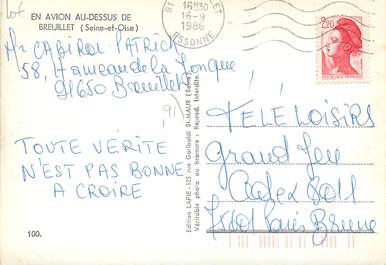 EN AVION AU-DESSUS DE
BREUILLET (Seine-et-Oise)
Mr CABIROL PATRICK
58, Hameau de la
91650 Breuillet
91
TOUTE VÉRITÉ
N'EST PAS BONNE
A CROIRE
100.
Edition LAPIE - 125 rue Garibaldi St-MAUR (Seine)
Véritable photo au bromure : Reprod. Interdite.
91
16H30
16-9
1986
ESSONNE
2,20
TÉLÉ LOISIRS
Grand Jeu
Cedex
Paris Brune